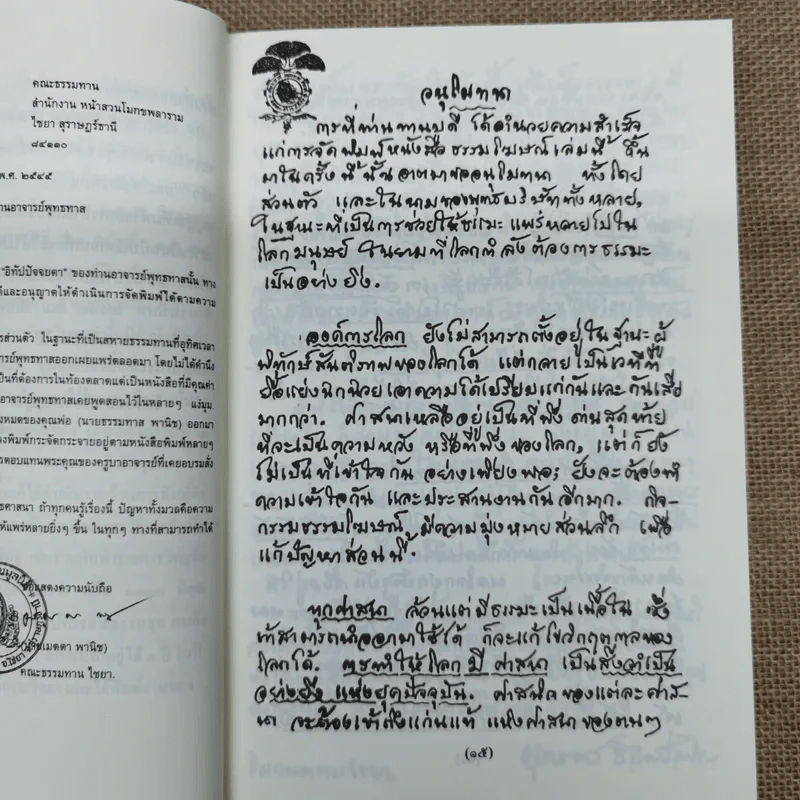 คณะธรรมทาน
สำนักงาน หน้าสวนโมกขพลาราม
ไชยา สุราษฎร์ธานี
๘๔๑๑๐
พ.ศ. ๒๕๔๕
านอาจารย์พุทธทาส
"อิทัปปัจจยตา" ของท่านอาจารย์พุทธทาสนั้น ทาง
ดีและอนุญาตให้ดำเนินการจัดพิมพ์ได้ตามความ
รส่วนตัว ในฐานะที่เป็นสหายธรรมทานที่อุทิศเวลา
ารย์พุทธทาสออกเผยแพร่ตลอดมา โดยไม่ได้คำนึง
เป็นที่ต้องการในท้องตลาดแต่เป็นหนังสือที่มีคุณค่า
อาจารย์พุทธทาสเคยพูดสอนไว้ในหลายๆ แง่มุม.
งหมดของคุณพ่อ (นายธรรมทาส พานิช) ออกมา
งพิมพ์กระจัดกระจายอยู่ตามหนังสือพิมพ์หลายๆ
รตอบแทนพระคุณของครูบาอาจารย์ที่เคยอบรมสั่ง
ธศาสนา ถ้าทุกคนรู้เรื่องนี้ ปัญหาทั้งมวลคือความ
ให้แพร่หลายยิ่งๆ ขึ้น ในทุกๆ ทางที่สามารถทำได้
แสดงความนับถือ
เมตตา พานิช)
คณะธรรมทาน ไชยา.
อนุโมทนา
การที่ท่านทานบดี ได้อำนวยความสำเร็จ
แก่การจัดพิมพ์หนังสือ ธรรมโฆษณ์เล่มนี้ ขึ้น
มาในครั้งนี้ นั้น อาตมาขออนุโมทนา ทั้งโดย
ส่วนตัว และในนามของพุทธบริษัททั้งหลาย,
ในฐานะที่เป็นการช่วยให้ธรรมะ แพร่หลายไปใน
โลกมนุษย์ ในยามที่โลกกำลังต้องการธรรมะ
เป็นอย่างยิ่ง.
องค์การโลก ยังไม่สามารถตั้งอยู่ในฐานะผู้
พิทักษ์สันติภาพของโลกได้ แต่กลายเป็นเวทีที่
ยื้อแย่งฉกฉวยเอาความได้เปรียบแก่กันและกันเสีย
มากกว่า. ศาสนาเหลืออยู่เป็นที่พึ่ง ด่านสุดท้าย
ที่จะเป็นความหวัง หรือที่พึ่งของโลก, แต่ก็ยัง
ไม่เป็นที่เข้าใจกัน อย่างเพียงพอ; ยังจะต้องทำ
ความเข้าใจกัน และประสานงานกันอีกมาก. กิจ-
กรรมธรรมโฆษณ์ มีความมุ่งหมายส่วนลึก เพื่อ
แก้ปัญหาส่วนนี้.
ทุกศาสนา ล้วนแต่มีธรรมะเป็นเนื้อใน ซึ่ง
ถ้าสามารถนำออกมาใช้ได้ ก็จะแก้ไขวิกฤตกาลของ
โลกได้. การทำให้โลก มี ศาสนา เป็นสิ่งจำเป็น
อย่างยิ่ง แห่งยุคปัจจุบัน. ศาสนิกของแต่ละศาส
นา จะต้องเข้าถึงแก่นแท้ แห่งศาสนาของตนๆ
(๑๕)